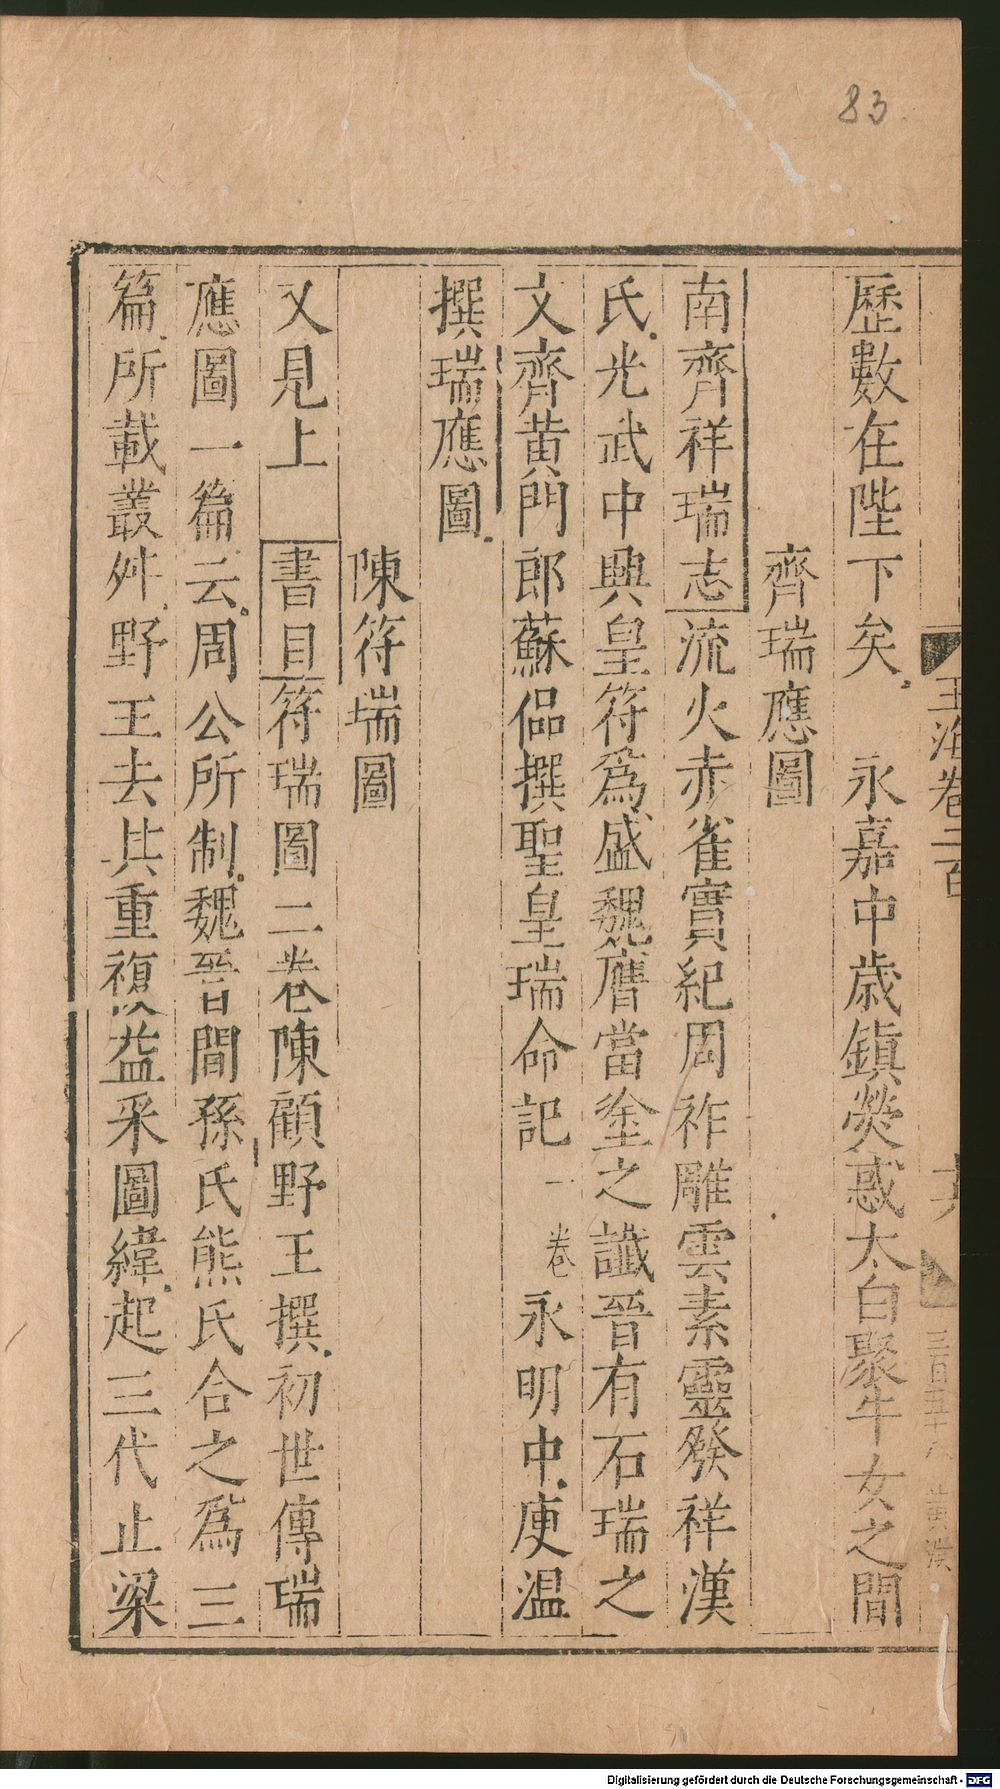 83
玉海卷二百
歷數在陛下矣 永嘉中歲鎮熒惑太白聚牛女之間
齊瑞應圖
南齊祥瑞志流火赤雀實紀周祚雕雲素靈發祥漢
氏光武中興皇符爲盛魏膺當塗之讖晉有石瑞之
文齊黄門郎蘇偘撰聖皇瑞命記一卷 永明中庾温
撰瑞應圖
陳符瑞圖
又見上 書目符瑞圖二卷陳顧野王撰初世傳瑞
應圖一篇云周公所制魏晉間孫氏熊氏合之爲三
篇所載叢舛野王去其重複益采圖緯起三代止梁
Digitalisierung gefördert durch die Deutsche Forschungsgemeinschaft - DFG